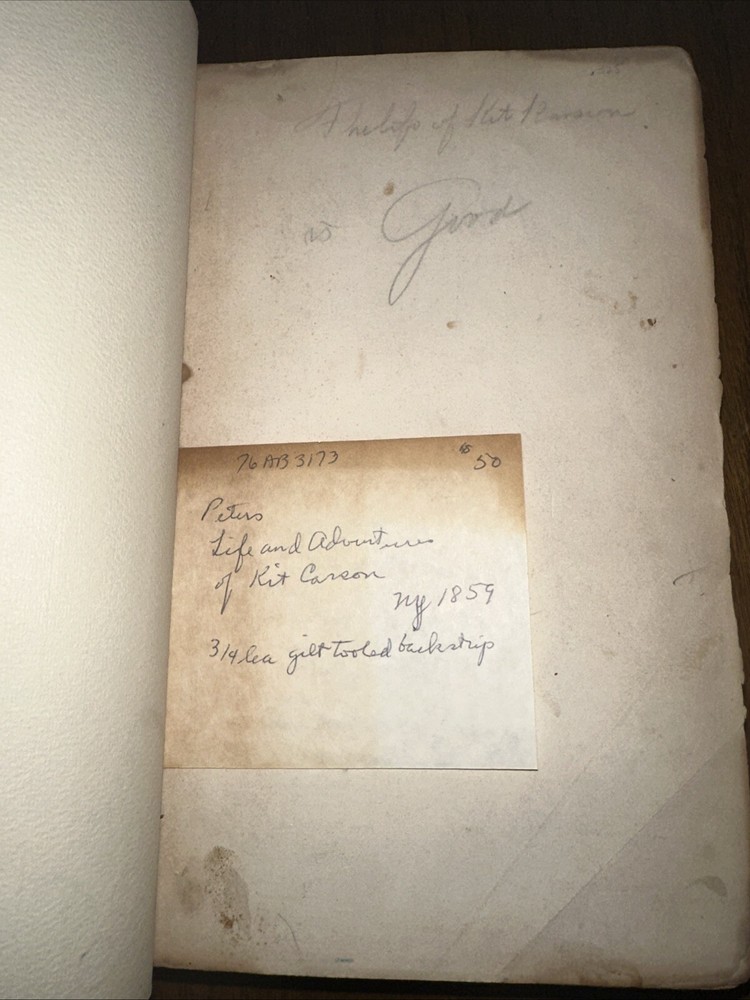 The life of Kit Karson
is Good
76AB3173 $50
Peters
Life and Adventures
of Kit Carson
NY 1859
3/4 lea gilt tooled backstrip